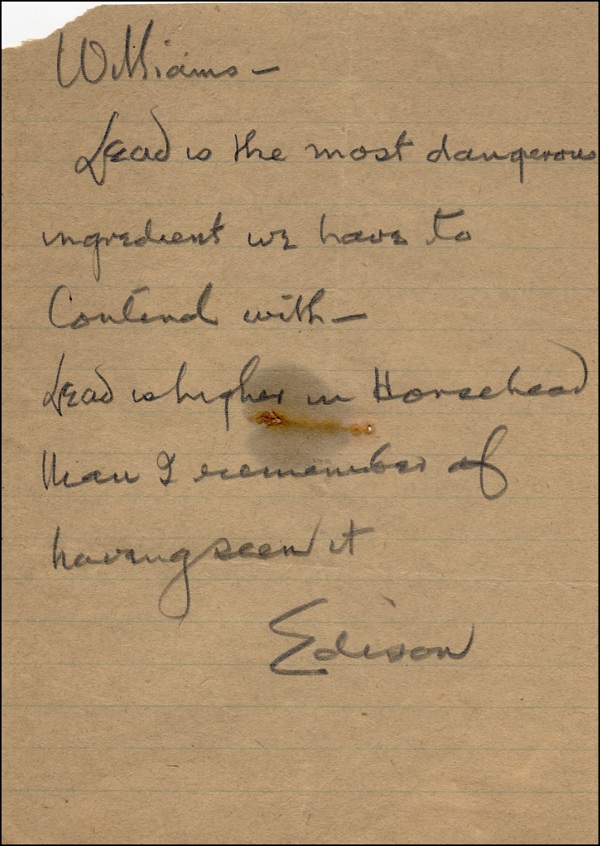 Williams —
Lead is the most dangerous
ingredient we have to
Contend with —
Lead is higher in Horsehead
than I remember of
having seen it
Edison